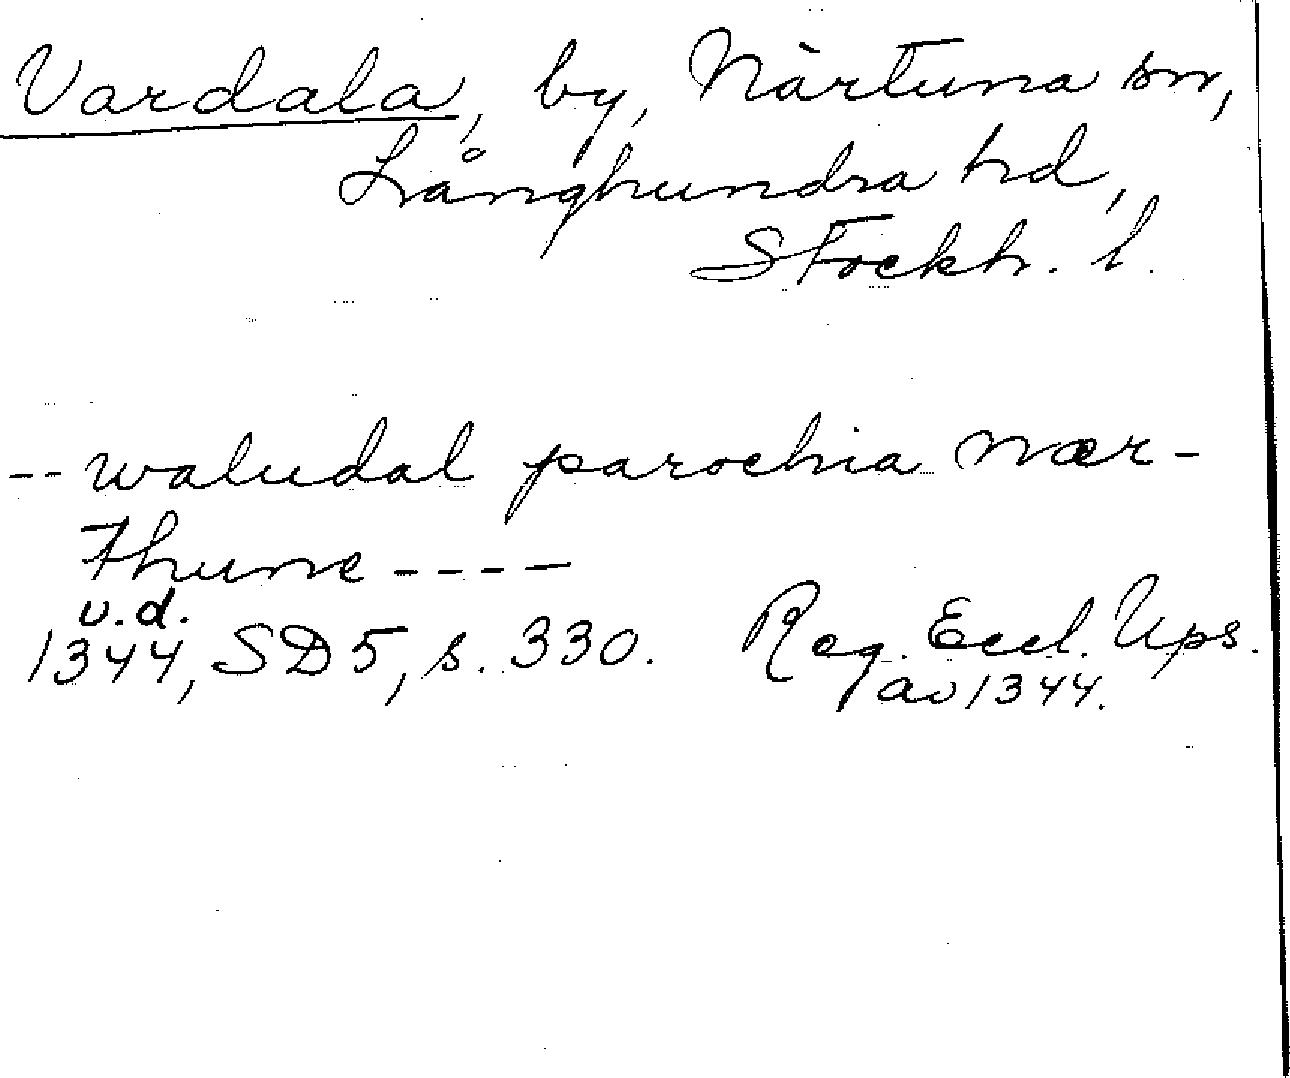 Vardala, by, Närtuna sn,
Långhundra hd,
Stockh. l.
-- waludal parochia nær-
thune ----
u.d.
1344, SD5, s. 330. Reg. Eccl. Ups.
av 1344.